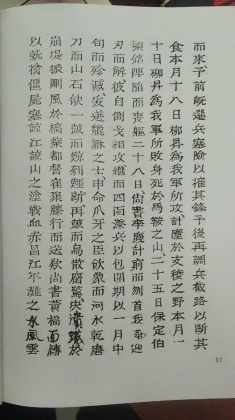 而來予前既選兵塞險以摧其鋒予後再調兵截路以斷其
食本月十八日柳昇爲我軍所攻計墮於支稜之野本月二
十日柳昇爲我軍所敗身死於馬鞍之山二十五日保定伯
梁銘陣陷而喪軀二十八日尚書李慶計窮而刎首我遂迎
刃而解彼自倒戈相攻繼而四面添兵以包圍期以一月中
旬而殄滅爰選貔貅之士申命爪牙之臣飲象而河水乾磨
刀而山石缺一鼓而鯨刳鱷斷再鼓而鳥散麇驚決潰蟻於
崩堤振剛風於槁葉都督崔聚膝行而送款尚書黃福面縛
以就擒僵屍塞諒江諒山之途戰血赤昌江平灘之水風雲
17